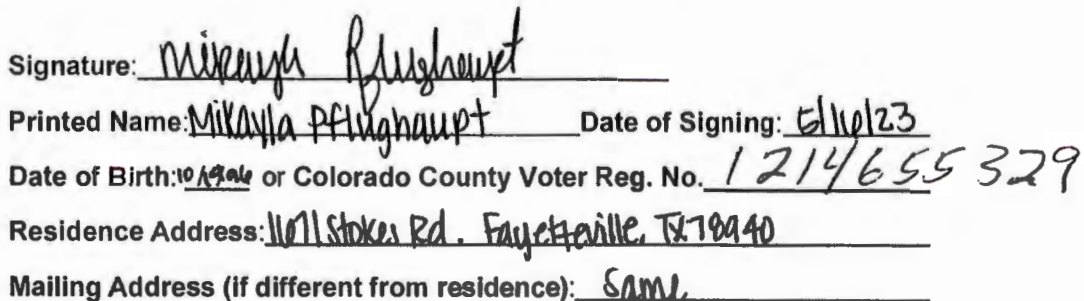 Signature: Mikayla Pflughaupt
Printed Name: Mikayla Pflughaupt Date of Signing: 5/16/23
Date of Birth: or Colorado County Voter Reg. No. 1214655329
Residence Address: Stokes Rd. Fayetteville, TX 78940
Mailing Address (if different from residence): Same